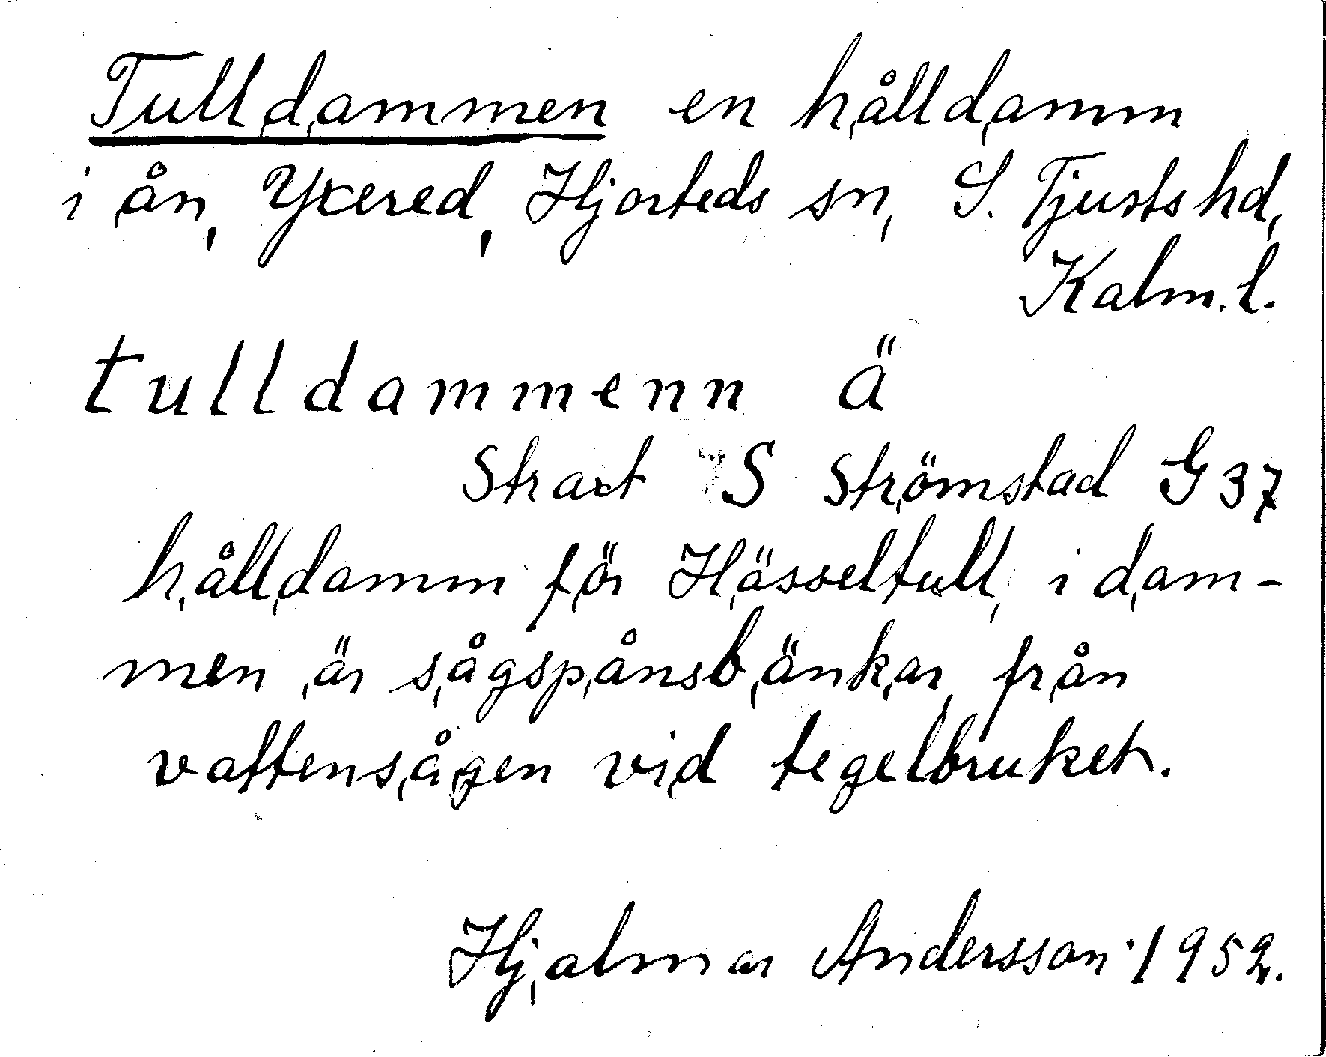 Tulldammen en hålldamm
i ån, Yxered, Hjorteds sn, S. Tjusts hd,
Kalm. l.
tulldammenn ä
Strax S Strömstad G 37
hålldamm för Hässeltull, i dam-
men är sågspånsbänkar från
vattensågen vid tegelbruket.
Hjalmar Andersson 1952.